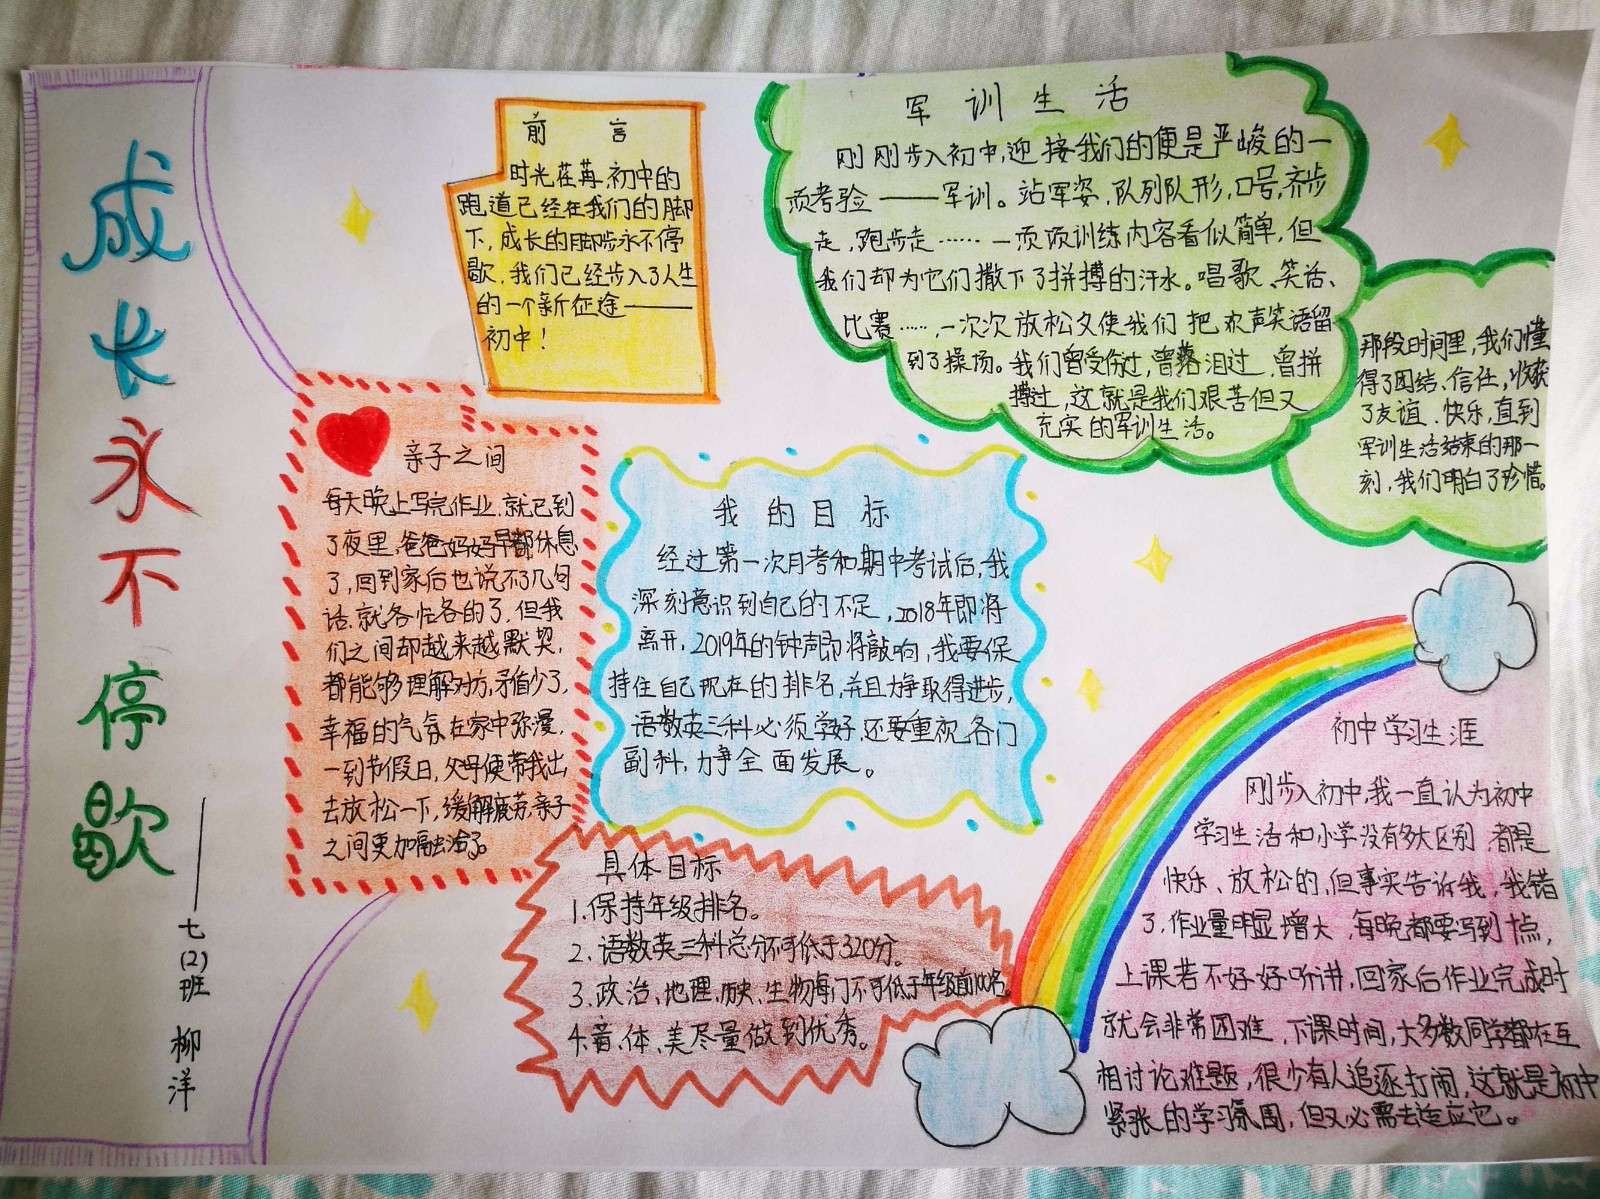 成长永不停歇
——七(2)班 柳洋
前言
时光荏苒,初中的
跑道已经在我们的脚
下,成长的脚步永不停
歇,我们已经步入了人生
的一个新征途——
初中!
军训生活
刚刚步入初中,迎接我们的便是严峻的一
项考验——军训。站军姿、队列队形,口号,齐步
走,跑步走……一项项训练内容看似简单,但
我们却为它们撒下了拼搏的汗水。唱歌、笑话、
比赛……,一次次放松又使我们把欢声笑语留
到了操场。我们曾受伤过,曾落泪过,曾拼
搏过,这就是我们艰苦但又
充实的军训生活。
那段时间里,我们懂
得了团结、信任,收获
了友谊、快乐,直到
军训生活结束的那一
刻,我们明白了珍惜。
亲子之间
每天晚上写完作业,就已到
了夜里,爸爸妈妈早都休息
了,回到家后也说不了几句
话,就各忙各的了,但我
们之间却越来越默契,
都能够理解对方,矛盾少了,
幸福的气氛在家中弥漫,
一到节假日,父母便带我出
去放松一下,缓解疲劳,亲子
之间更加融洽了。
我的目标
经过第一次月考和期中考试后,我
深刻意识到自己的不足,2018年即将
离开,2019年的钟声即将敲响,我要保
持住自己现在的排名,并且力争取得进步,
语数英三科必须学好,还要重视各门
副科,力争全面发展。
具体目标
1.保持年级排名。
2.语数英三科总分不可低于320分。
3.政治、地理、历史、生物每门不可低于年级前100名。
4.音、体、美尽量做到优秀。
初中学习生涯
刚步入初中,我一直认为初中
学习生活和小学没有多大区别,都是
快乐、放松的,但事实告诉我,我错
了,作业量明显增大,每晚都要写到十点,
上课若不好好听讲,回家后作业完成时
就会非常困难,下课时间,大多数同学都在互
相讨论难题,很少有人追逐打闹,这就是初中
紧张的学习氛围,但又必需去适应它。